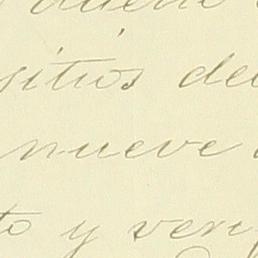 sitios del
nueve
to y veri